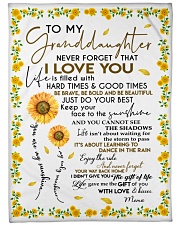 TO MY
Granddaughter
NEVER FORGET THAT
I LOVE YOU
Life is filled with
HARD TIMES & GOOD TIMES
BE BRAVE, BE BOLD AND BE BEAUTIFUL
JUST DO YOUR BEST
Keep your
face to the sunshine
AND YOU CANNOT SEE
THE SHADOWS
Life isn't about waiting for
the storm to pass
IT'S ABOUT LEARNING TO
DANCE IN THE RAIN
Enjoy the ride
And never forget
YOUR WAY BACK HOME
I DIDN'T GIVE YOU the gift of life
Life gave me the GIFT of you
WITH LOVE & kisses
You are my sunshine